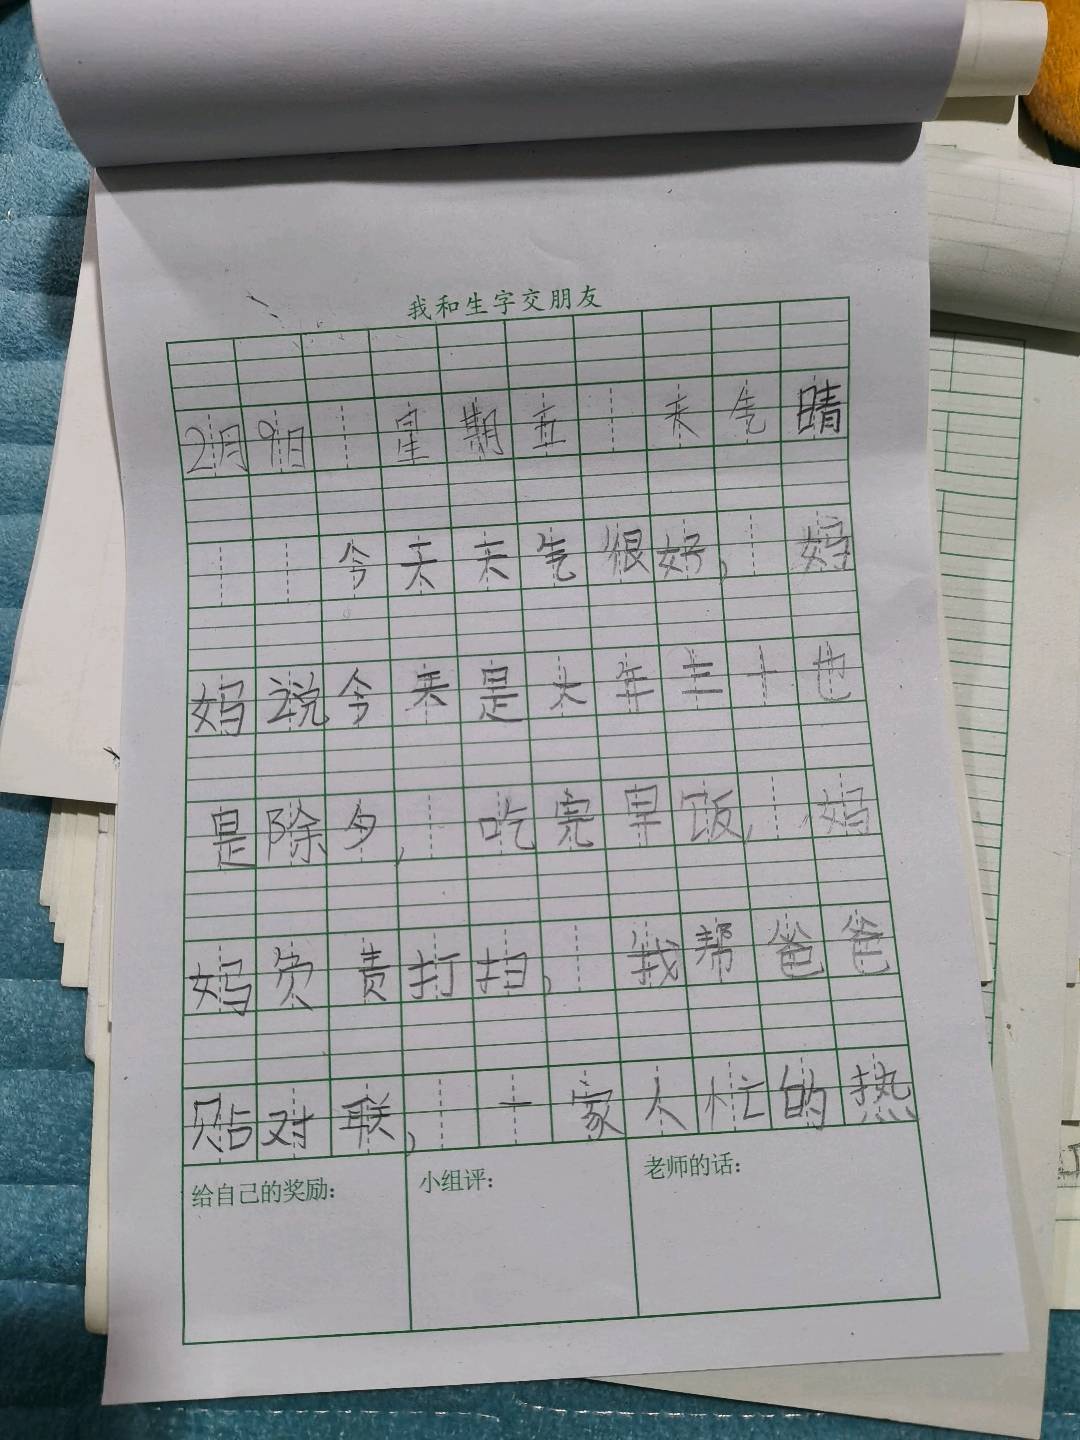 我和生字交朋友
2月9日 星期五 天气晴
今天天气很好, 妈
妈说今天是大年三十也
是除夕, 吃完早饭, 妈
妈负责打扫, 我帮爸爸
贴对联, 一家人忙的热
给自己的奖励: 小组评: 老师的话: